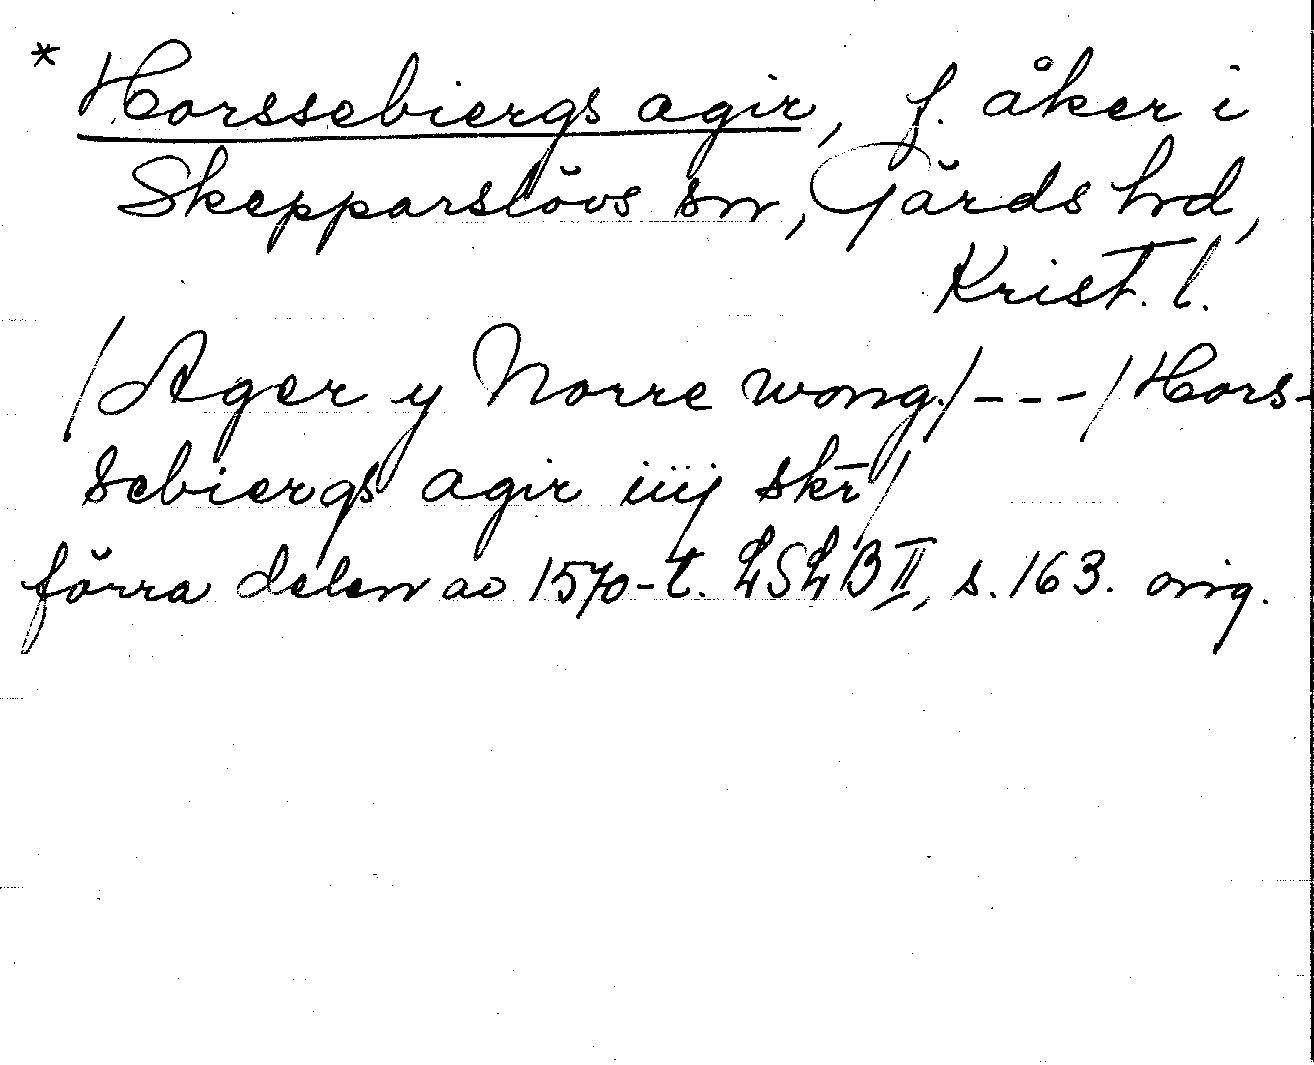 * Horssebiergs agir, f. åker i
Skepparslövs sn, Gärds hd,
Krist. l.
/Ager y Norre wong/---/Hors-
sebiergs agir iiij skr̄/
förra delen av 1570-t. LSLB II, s. 163. orig.